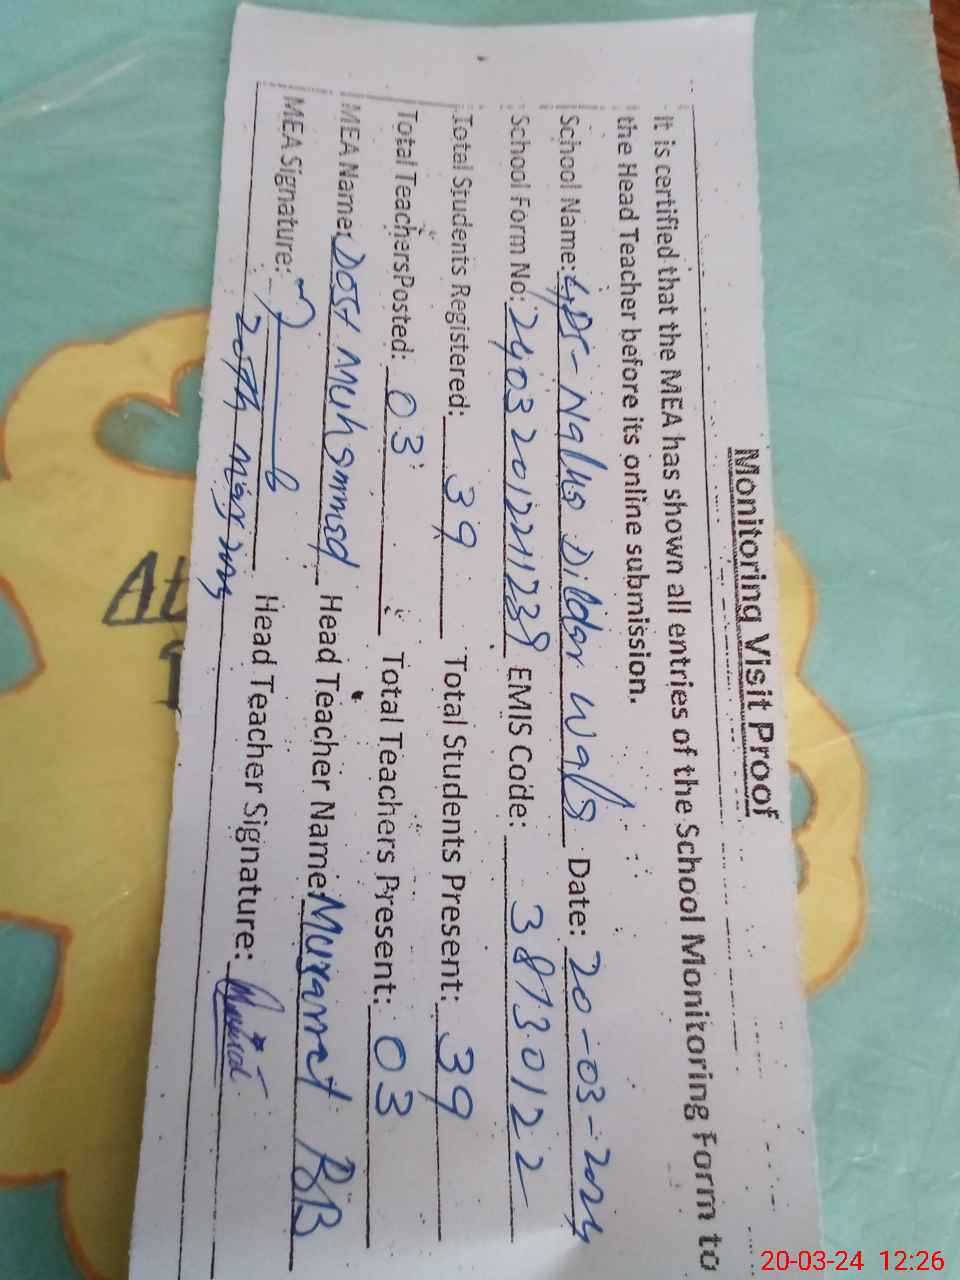 Monitoring Visit Proof
It is certified that the MEA has shown all entries of the School Monitoring Form to
the Head Teacher before its online submission.
School Name: GPS-Nalka Dildar wala Date: 20-03-2024
School Form No: EMIS Code: 38130122
Total Students Registered: 39 Total Students Present: 39
Total Teachers Posted: 03 Total Teachers Present: 03
MEA Name: Dost Muhammad Head Teacher Name: Musarrat BB
MEA Signature: Head Teacher Signature:
20th Mar 2024
20-03-24 12:26